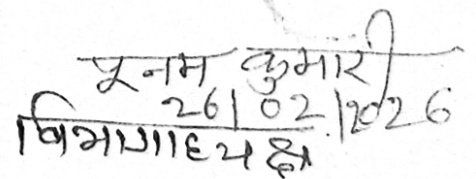 पूनम कुमारी
26/02/2026
विभागाध्यक्ष